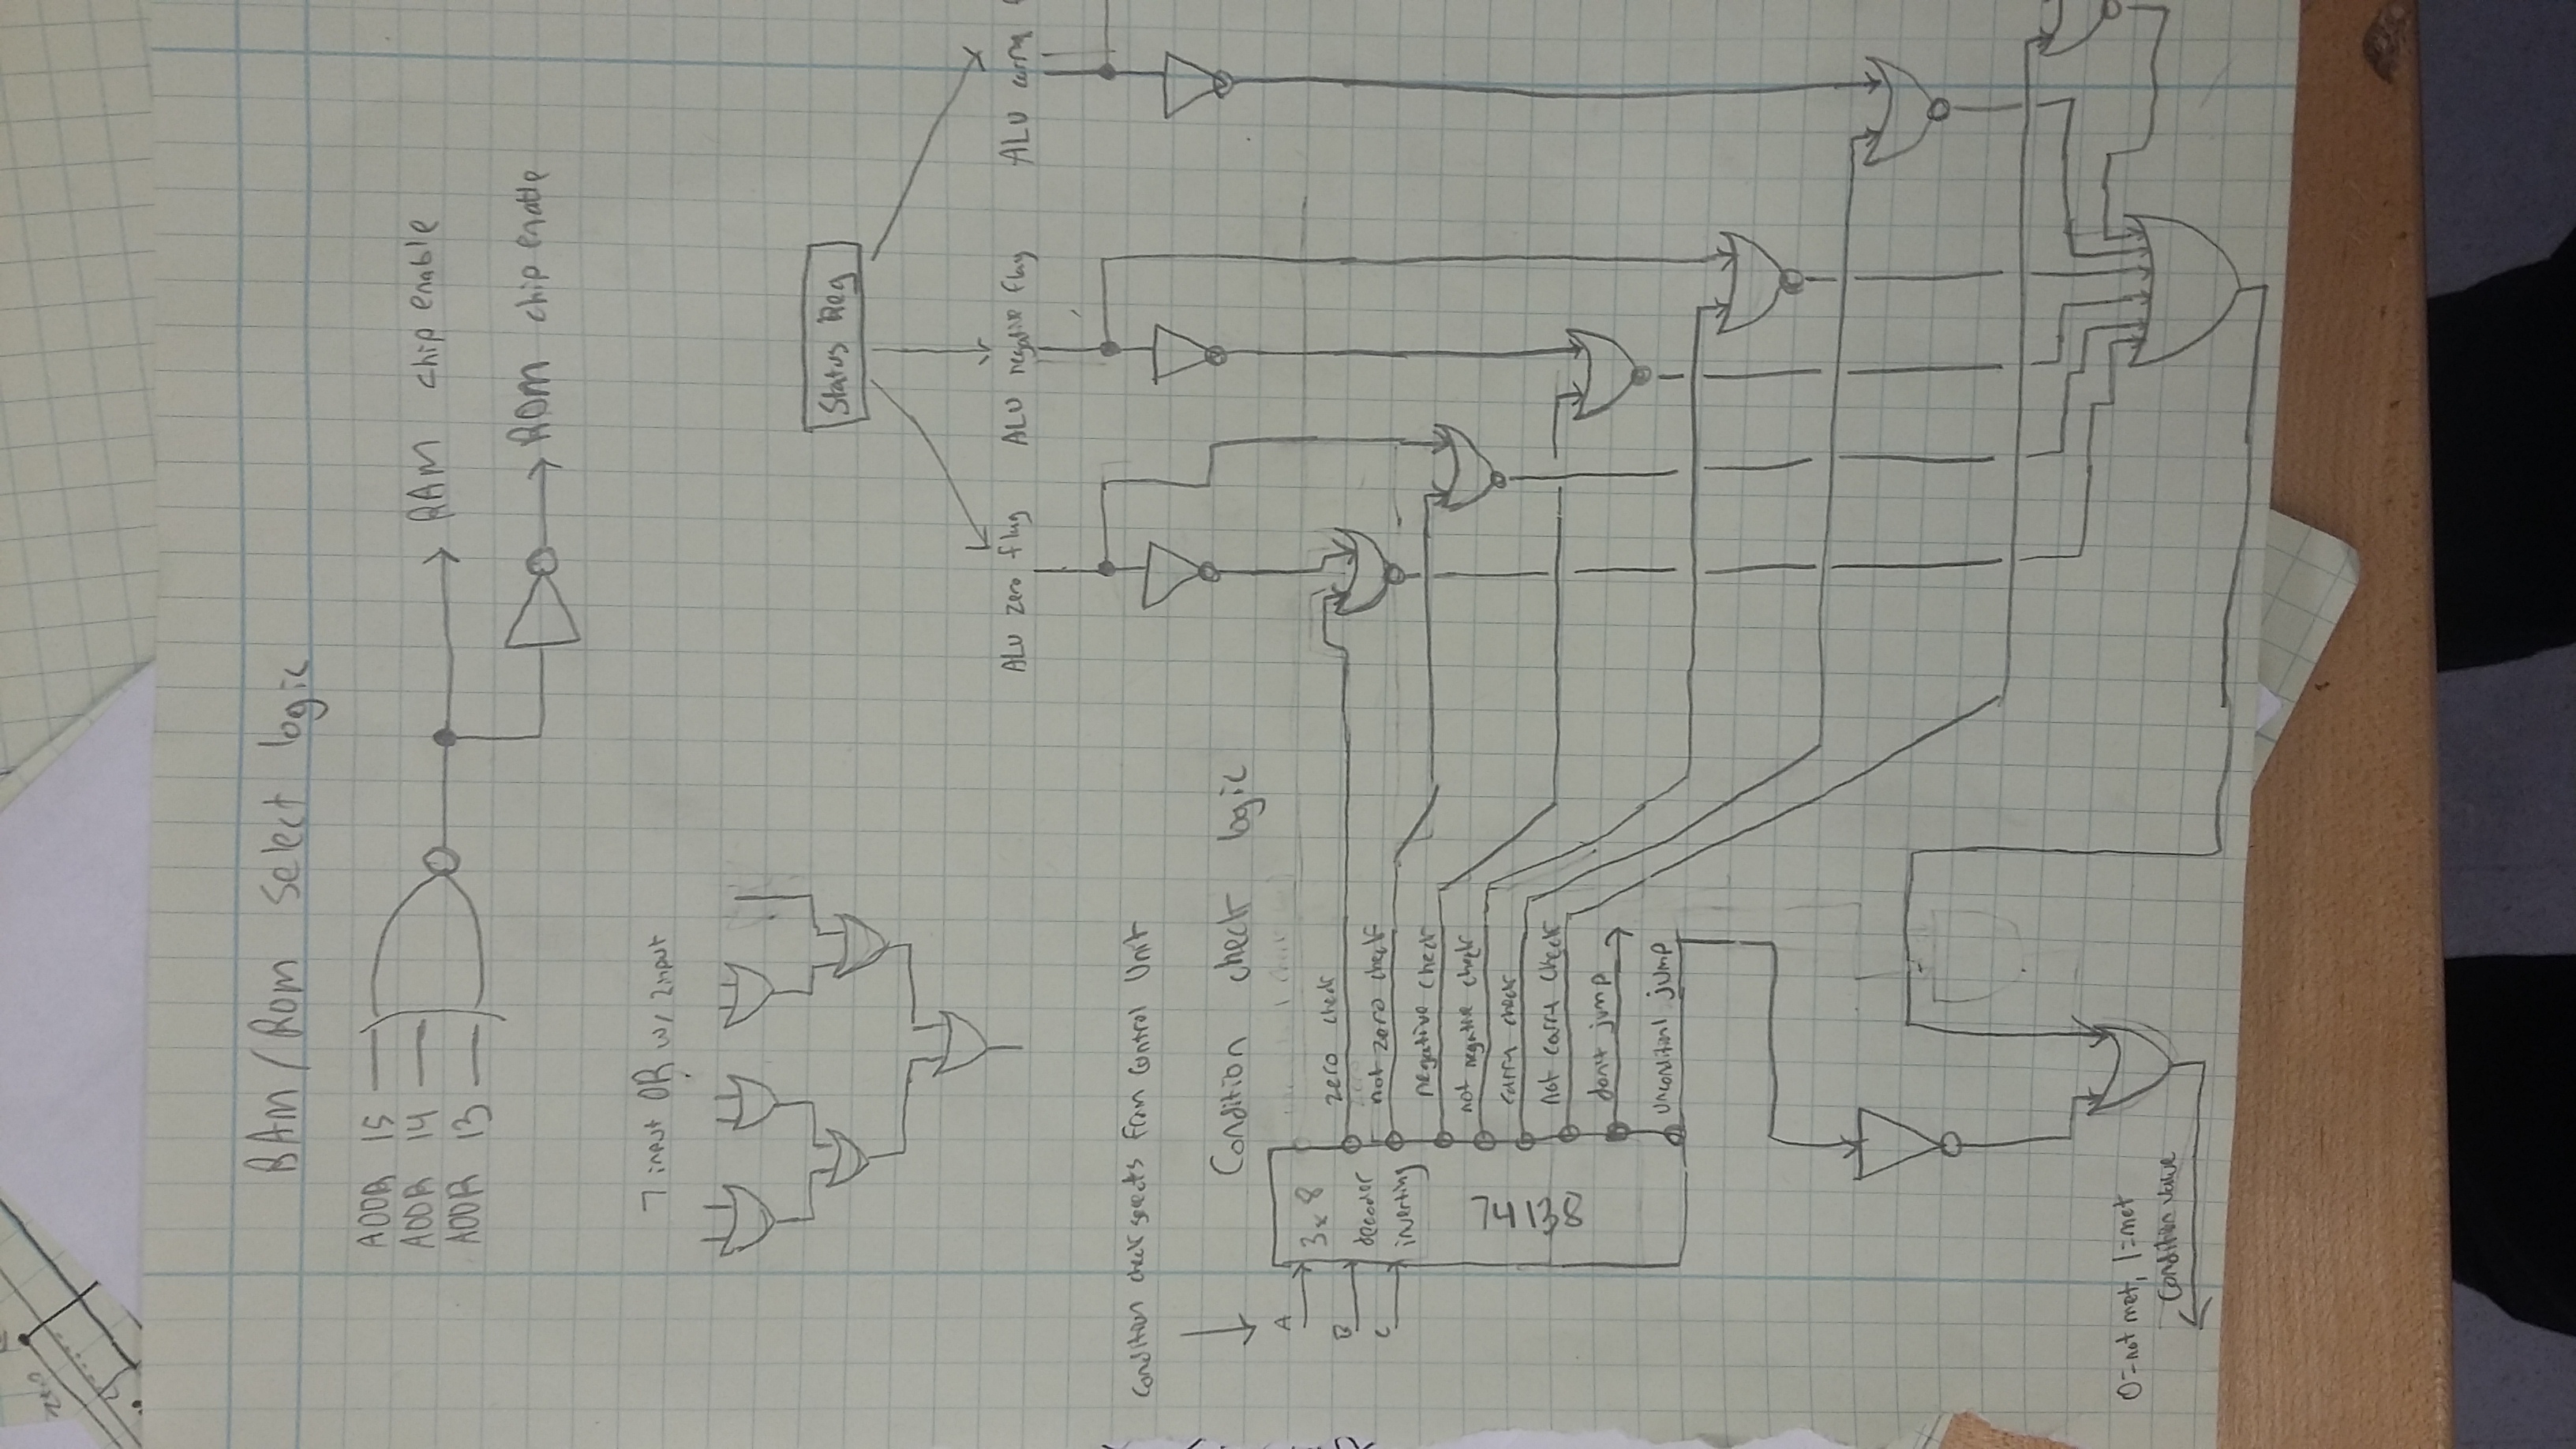 RAM/Rom select logic
ADDR 15
ADDR 14
ADDR 13
RAM chip enable
ROM chip enable
7 input OR w/ 2input
Status Reg
ALU zero flag
ALU negative flag
ALU carry
Condition check selects from Control Unit
Condition check logic
A
B
C
3x8
decoder
inverting
74138
zero check
not zero check
negative check
not negative check
carry check
not carry check
don't jump
unconditionl jump
0=not met, 1=met
Condition value